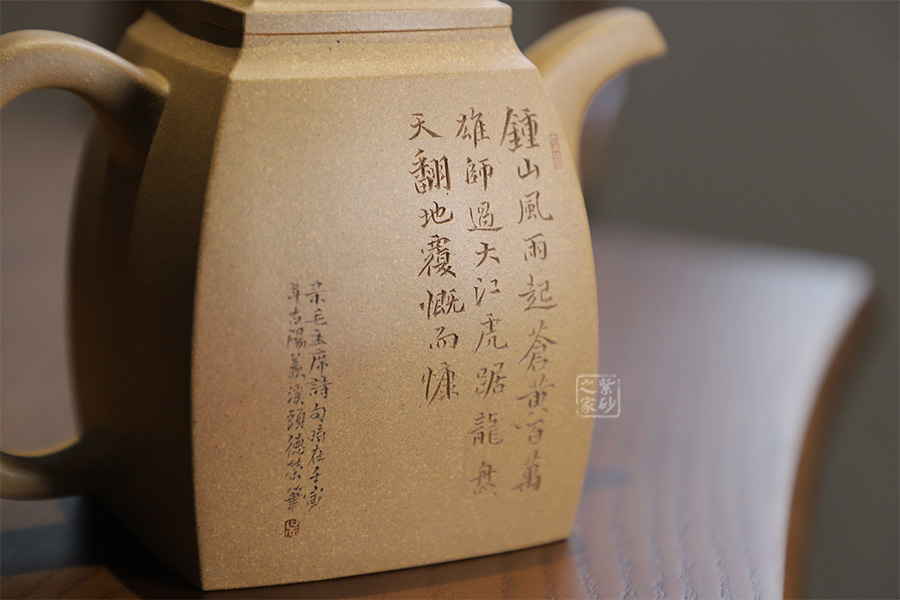 鍾山風雨起蒼黃百萬
雄師過大江虎踞龍盤
天翻地覆慨而慷
录毛主席詩句時在壬寅
年古陽羨溪頭德榮筆
紫砂
之家